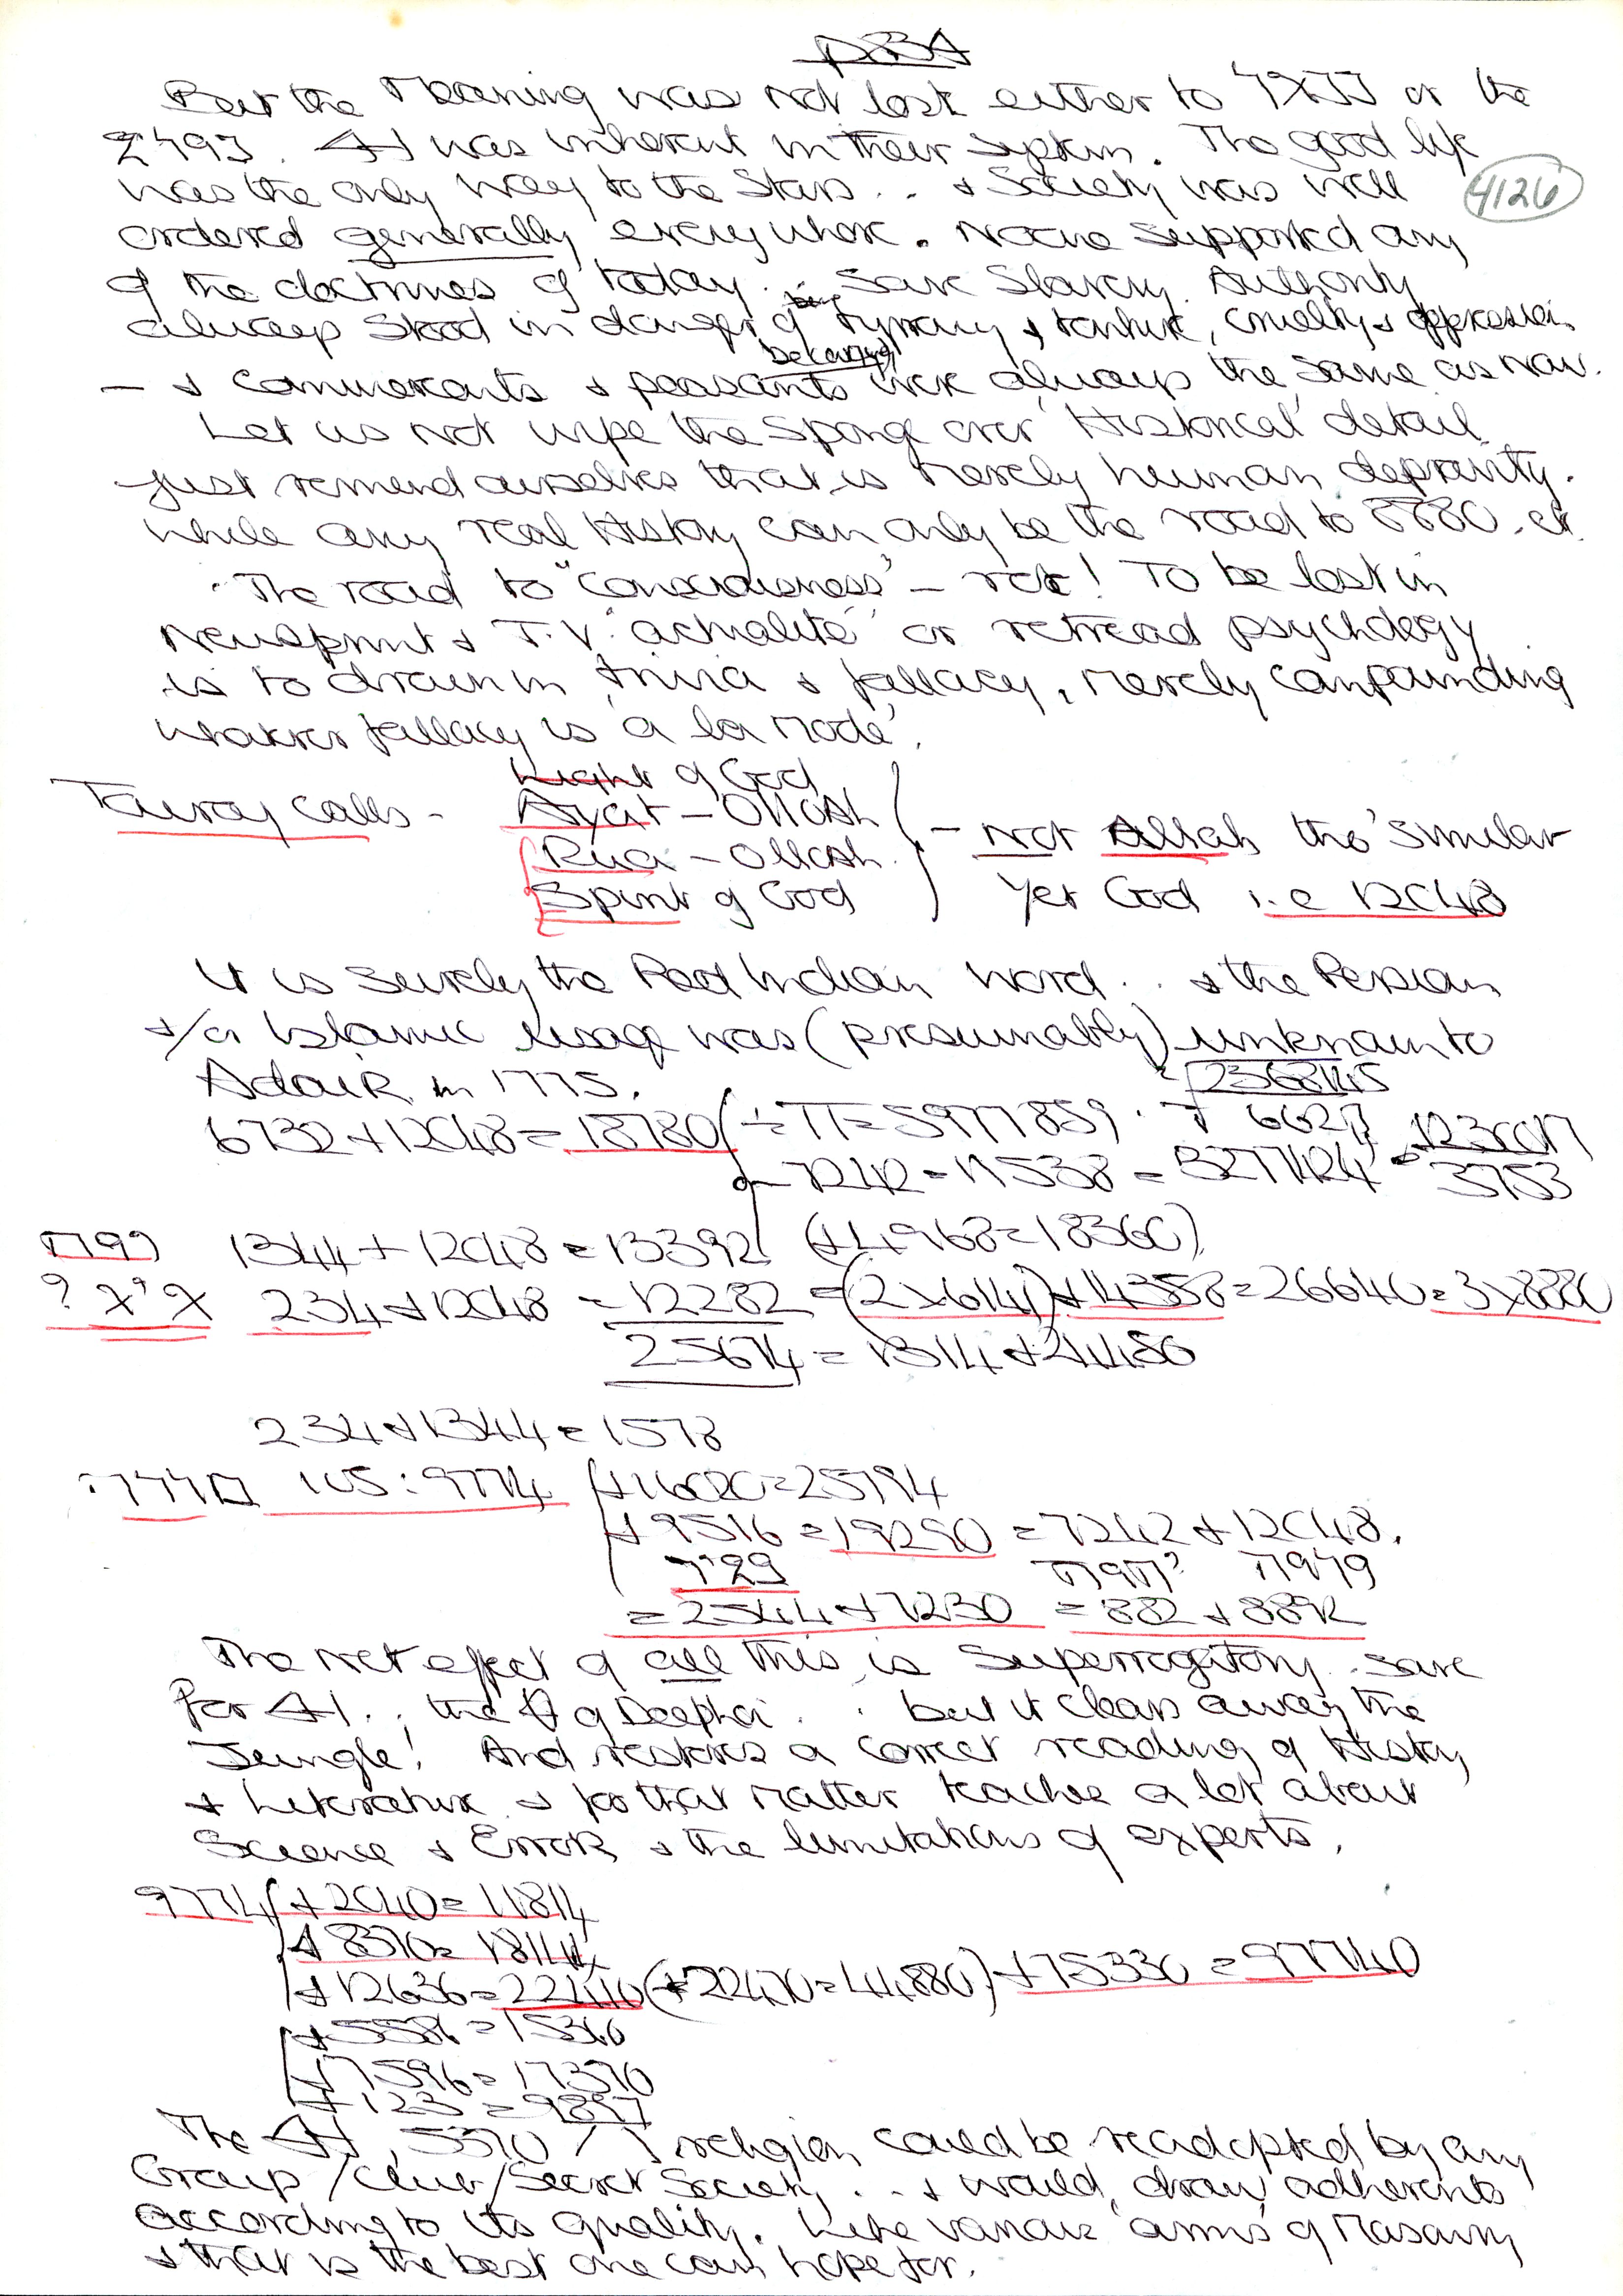 But the Meaning was not lost either to or the
It was inherent in their system. The good life
was the only way to the Stars .. & Society was well
4126
ordered generally everywhere. No one supported any
of the doctrines of today .. Save Slavery. Authority
always stood in danger of becoming tyranny & torture, cruelty & oppression
— & commerçants & peasants were always the same as now.
Let us not wipe the Sponge over 'Historical' detail
just remind ourselves that is merely human depravity.
While any real History can only be the road to 8880. et
The road to "consciousness" — rot! To be lost in
Newsprint & T.V. 'actualité' or retread psychology
is to drown in trivia & fallacy, merely compounding
whatever fallacy is 'a la mode'.
calls - of God
Ayat - Ollosh
Rua - Ollosh
Spirit of God
- not Allah the 'similar
Yet God i.e 12048
It is surely the Red Indian word .. & the Persian
&/or Islamic usage was (presumably) unknown to
Adair in 1775.
6732 + 12048 = 18780 ÷ π = 5977859
- 7242 = 11538 = 3753
1344 + 12048 = 13392 (+ 4968 = 18360)
234 + 12048 = 12282 = (2 x 6141) + 14358 = 26640 = 3 x 8880
25674 = 1314 +
234 + 1344 = 1578
105 : 9774 + 16020 = 25794
+ 9516 = 19290 = 7242 + 12048.
= 2544 + = 882 + 8892
The net effect of all this is Superrogatory. save
for .. the of .. but it clears away the
Jungle! And restores a correct reading of History
& Literature & for that matter teaches a lot about
Science & Error & the limitations of experts.
9774 + 2040 = 11814
+ 8370 = 18144
+ 12636 = 22410 (+ 22470 = 44880) + 75330 = 97740
+ 5586 = 15360
+ 7596 = 17370
+ 123 = 9897
The , 5370 / religion could be readopted by any
Group / Club / Secret Society .. & would draw adherents
According to its quality. Like various 'arms' of Masonry
& that is the best one can hope for.